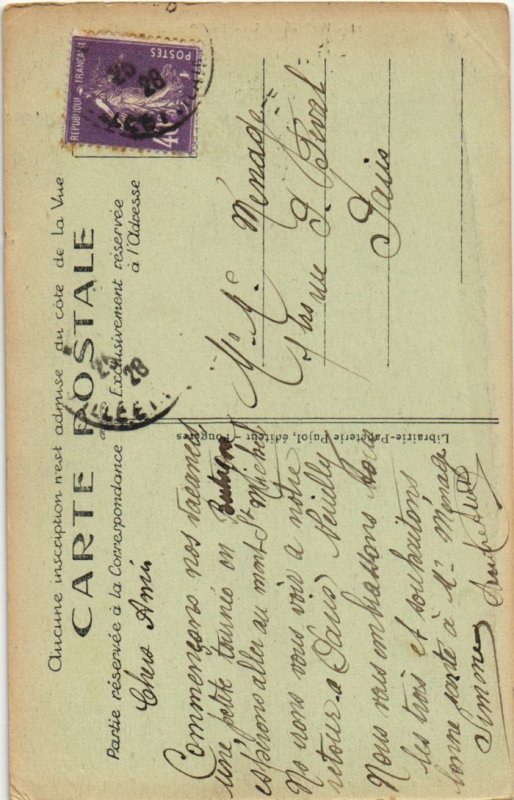 Aucune inscription n'est admise du côté de la Vue
CARTE POSTALE
Partie réservée à la Correspondance
Exclusivement réservée
à l'Adresse
REPUBLIQUE FRANÇAISE
POSTES
28
28
Chers Amis
Commençons nos vacances
une petite tournée en
espérons aller au mont St Michel
No irons vous voir à notre
retour à Paris Neuilly
Nous vous embrassons tous
les trois et souhaitons
bonne santé à Mr Ménage
Librairie-Papeterie Pujol, éditeur - Fougères
Mr Ménage
rue
Paris